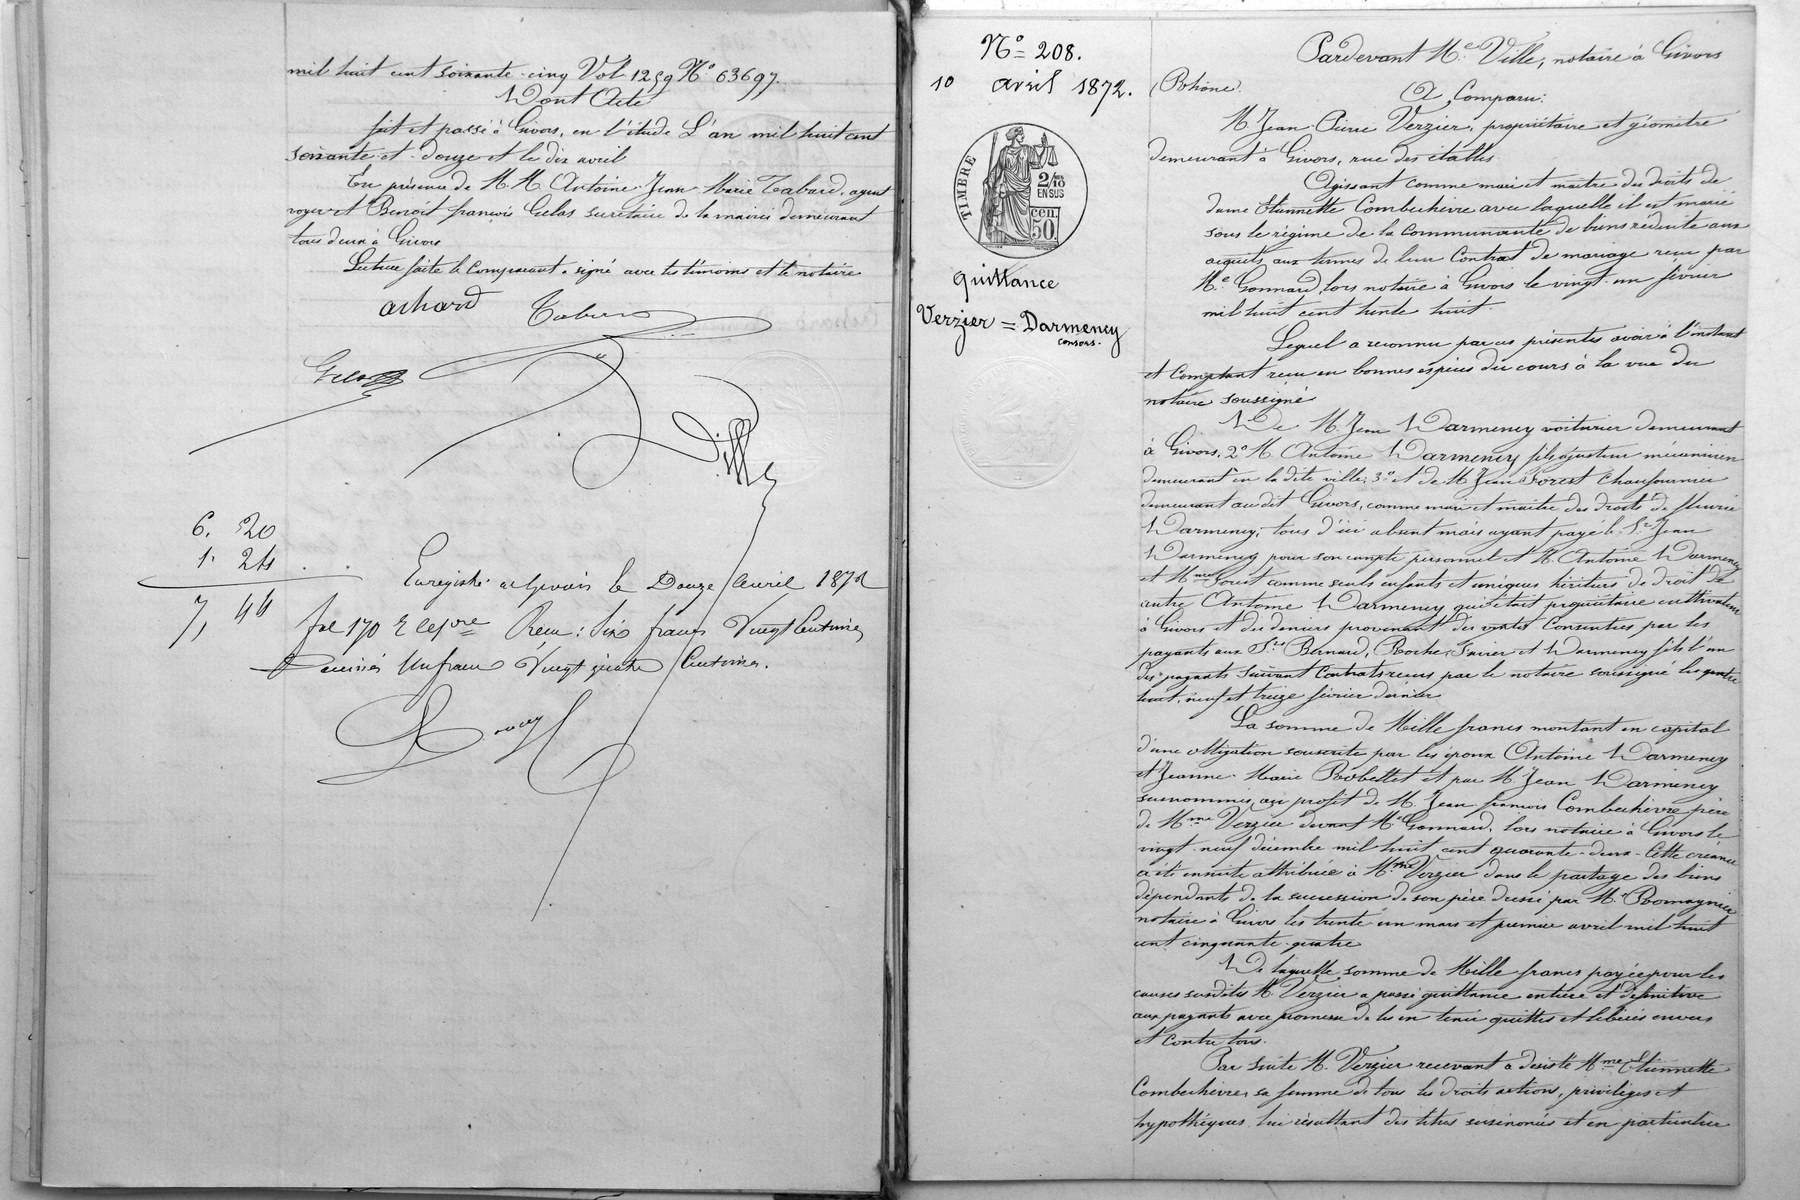 mil huit cent soixante-cinq Vol 1259 N° 63697.
Dont Acte
fait et passé à Givors, en l'étude L'an mil huit cent
soixante et douze et le dix avril
En présence de M.M. Antoine Jean Marie Tabard, agent
voyer et Benoit françois Gelas secrétaire de la mairie demeurant
tous deux à Givors
Lecture faite le Comparant a signé avec les témoins et le notaire
achard Tabard
Gelas
Ville
6. 20
1. 24
7, 44
Enregistré à Givors le Douze Avril 1872
fol 170 Reçu: Six francs Vingt Centimes
Décimes Un franc Vingt quatre Centimes.
N° 208.
10 avril 1872.
TIMBRE
2/10 EN SUS
50 cen.
quittance
Verzier = Darmency
consors.
Pardevant Me Ville, notaire à Givors
(Rhône)
A Comparu:
M. Jean Pierre Verzier, propriétaire et géomètre
demeurant à Givors, rue des étables
Agissant comme mari et maître des droits de
dame Etiennette Combechèvre avec laquelle il est marié
sous le régime de la Communauté de biens réduite aux
acquets aux termes de leur Contrat de mariage reçu par
Me Gonnard, lors notaire à Givors le vingt-un février
mil huit cent trente huit.
Lequel a reconnu par ces présentes avoir à l'instant
et Comptant reçu en bonnes espèces du cours à la vue du
notaire soussigné
De M. Jean Darmency voiturier demeurant
à Givors, 2° M. Antoine Darmency fils ajusteur mécanicien
demeurant en la dite ville; 3° et de M. Jean Forest Chaufournier
demeurant audit Givors, comme mari et maître des droits de
Darmency; tous d'ici absent mais ayant payé le Sr Jean
Darmency pour son compte personnel et M. Antoine Darmency
et Mme Forest comme seuls enfants et uniques héritiers de droit de
autre Antoine Darmency qui était propriétaire cultivateur
à Givors et des deniers provenant des ventes Consenties par les
payants aux Srs Bernard, Roche, et Darmency fils l'un
des payants suivant Contrats reçus par le notaire soussigné les quatre
huit, neuf et treize février dernier
La somme de Mille francs montant en capital
d'une obligation souscrite par les époux Antoine Darmency
et Jeanne Marie Robellet et par M. Jean Darmency
susnommés au profit de M. Jean françois Combechèvre père
de Mme Verzier devant Me Gonnard, lors notaire à Givors le
vingt-neuf décembre mil huit cent quarante-deux. Cette créance
a été ensuite attribuée à Mme Verzier dans le partage des biens
dépendants de la succession de son père dressé par Me
notaire à Givors les trente un mars et premier avril mil huit
cent cinquante-quatre
De laquelle somme de Mille francs payée pour les
causes susdites M. Verzier a passé quittance entière et définitive
aux payants avec promesse de les en tenir quittes et libérés envers
et Contre tous.
Par suite M. Verzier recevant a désisté Mme Etiennette
Combechèvre, sa femme de tous les droits actions, privilèges et
hypothèques lui résultant des titres susénoncés et en particulier